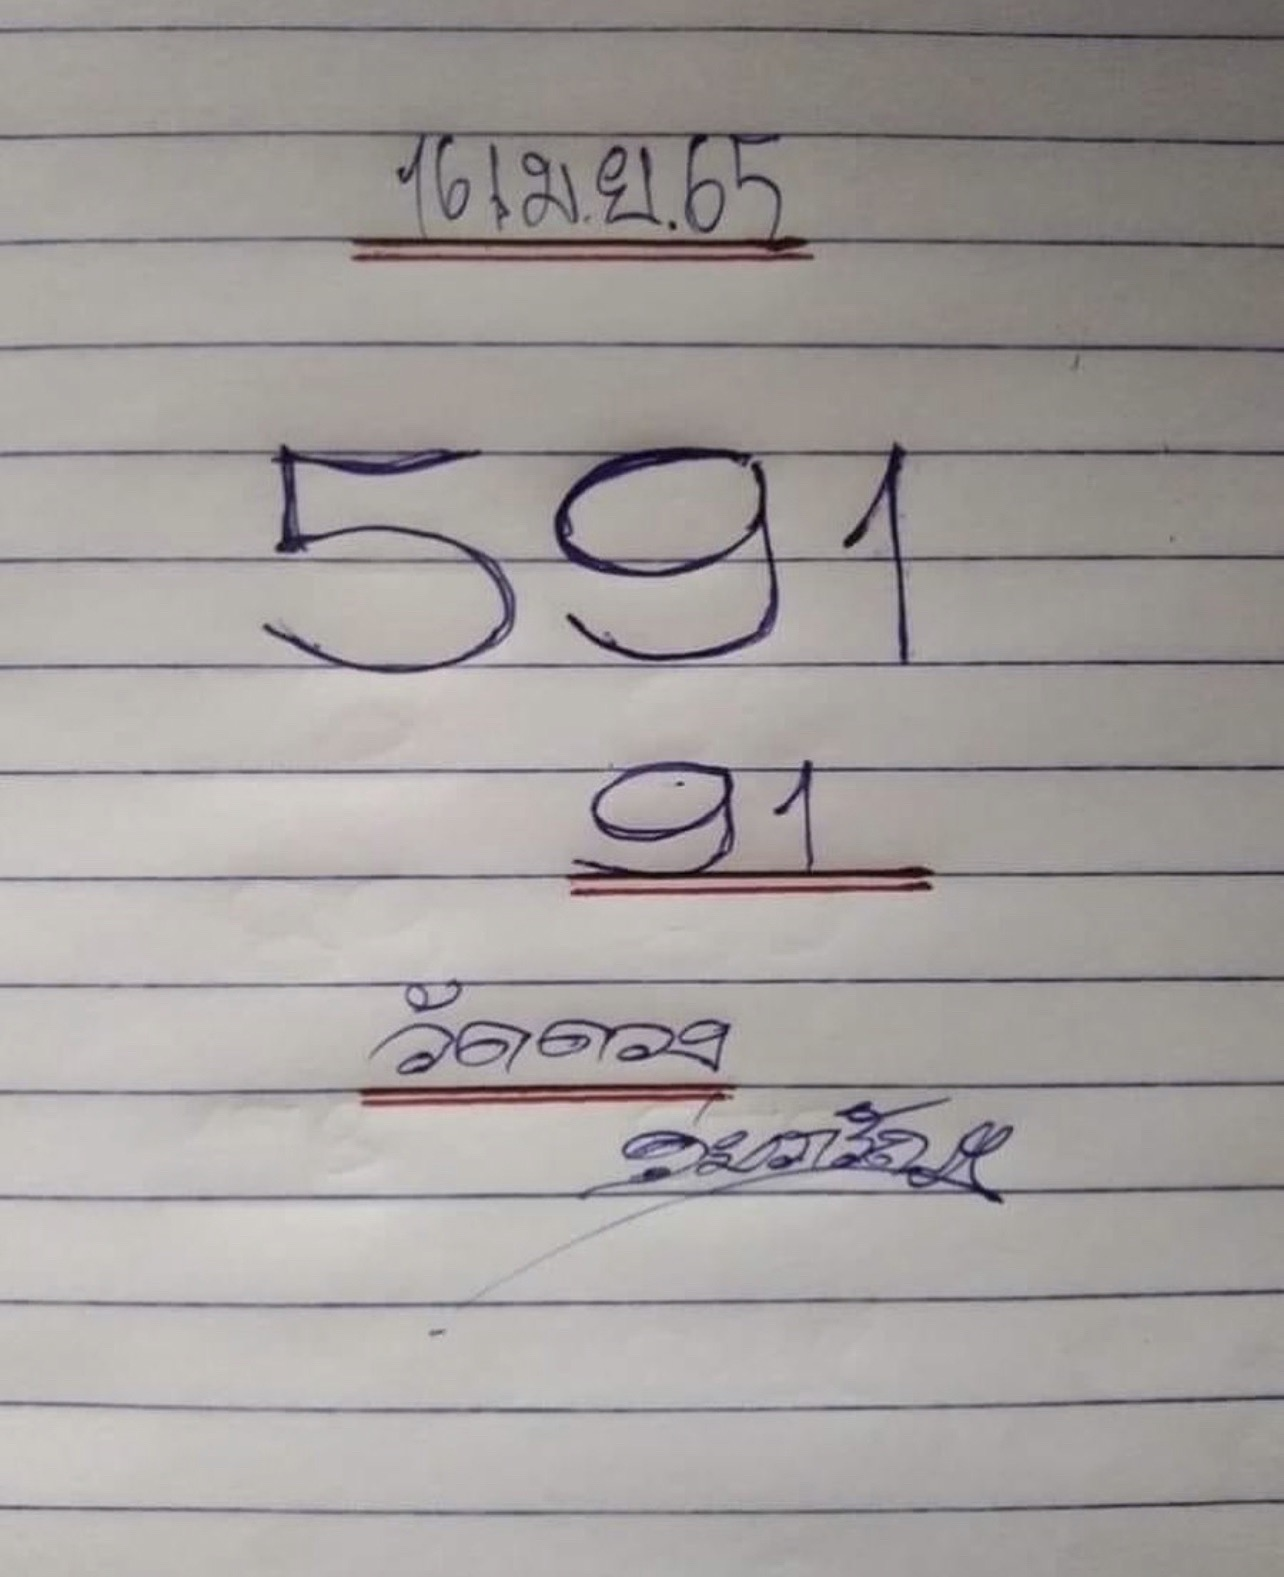 16 เม.ย.65
591
91
วัดดวง